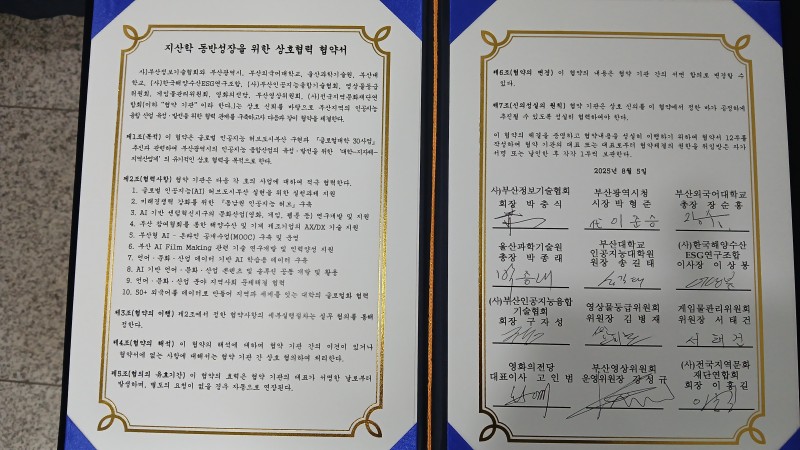 지산학 동반성장을 위한 상호협력 협약서
사)부산정보기술협회와 부산광역시, 부산외국어대학교, 울산과학기술원, 부산대
학교, (사)한국해양수산ESG연구조합, (사)부산인공지능융합기술협회, 영상물등급
위원회, 게임물관리위원회, 영화의전당, 부산영상위원회, (사)전국지역문화재단연
합회(이하 "협약 기관" 이라 한다.)는 상호 신뢰를 바탕으로 부산지역의 인공지능
융합 산업 육성·발전을 위한 협력 관계를 구축하고자 다음과 같이 협약을 체결한다.
제1조(목적) 이 협약은 글로벌 인공지능 허브도시부산 구현과 「글로컬대학 30사업」
추진과 관련하여 부산광역시의 인공지능 융합산업의 육성·발전을 위한 '대학-지자체-
지역산업체' 의 유기적인 상호 협력을 목적으로 한다.
제2조(협력사항) 협약 기관은 다음 각 호의 사업에 대하여 적극 협력한다.
1. 글로벌 인공지능(AI) 허브도시부산 실현을 위한 실천과제 지원
2. 미래경쟁력 강화를 위한 「동남권 인공지능 허브」 구축
3. AI 기반 센텀혁신지구의 문화산업(영화, 게임, 웹툰 등) 연구개발 및 지원
4. 부산 참여협회를 통한 해양수산 및 기계 제조기업의 AX/DX 기술 지원
5. 부산형 AI·온라인 공개수업(MOOC) 구축 및 운영
6. 부산 AI Film Making 관련 기술 연구개발 및 인력양성 지원
7. 언어·문화·산업 데이터 기반 AI 학습용 데이터 구축
8. AI 기반 언어·문화·산업 콘텐츠 및 솔루션 공동 개발 및 활용
9. 언어·문화·산업 분야 지역사회 문제해결 협력
10. 50+ 외국어를 데이터로 만들어 지역과 세계를 잇는 대학의 글로컬화 협력
제3조(협약의 이행) 제2조에서 정한 협약사항의 세부실행절차는 실무 협의를 통해
정한다.
제4조(협약의 해석) 이 협약의 해석에 대하여 협약 기관 간의 이견이 있거나
협약서에 없는 사항에 대해서는 협약 기관 간 상호 협의하여 처리한다.
제5조(협의의 유효기간) 이 협약의 효력은 협약 기관의 대표가 서명한 날로부터
발생하며, 별도의 요청이 없을 경우 자동으로 연장된다.
제6조(협약의 변경) 이 협약의 내용은 협약 기관 간의 서면 합의로 변경할 수
있다.
제7조(신의성실의 원칙) 협약 기관은 상호 신의를 이 협약에서 정한 바가 공정하게
추진될 수 있도록 성실히 협력하여야 한다.
이 협약의 체결을 증명하고 협약내용을 성실히 이행하기 위하여 협약서 12부를
작성하여 협약 기관의 대표 또는 대표로부터 협약체결의 권한을 위임받은 자가
서명 또는 날인한 후 각각 1부씩 보관한다.
2025년 8월 5일
사)부산정보기술협회 부산광역시청 부산외국어대학교
회장 박충식 시장 박형준 총장 장순흥
이준승
울산과학기술원 부산대학교 (사)한국해양수산
총장 박종래 인공지능대학원 ESG연구조합
원장 송길태 이사장 이상봉
(사)부산인공지능융합 영상물등급위원회 게임물관리위원회
기술협회 위원장 김병재 위원장 서태건
회장 구자성
서태건
영화의전당 부산영상위원회 (사)전국지역문화
대표이사 고인범 운영위원장 강성규 재단연합회
회장 이홍길